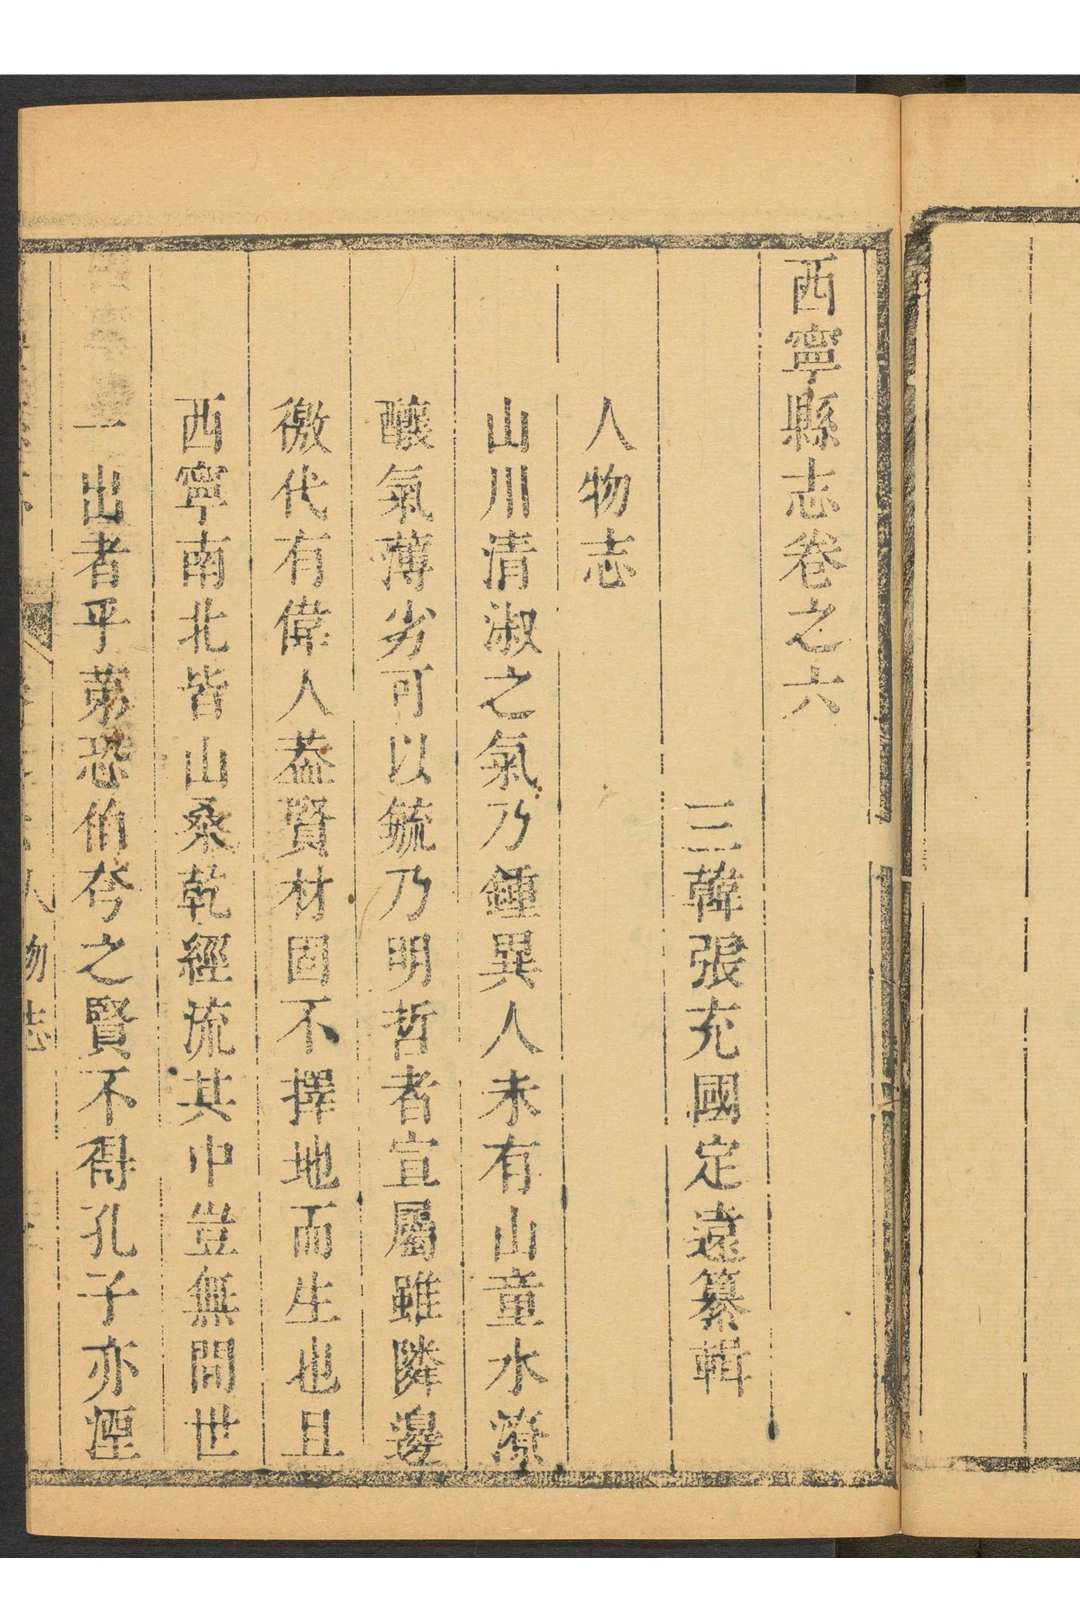 西寧縣志卷之六
三韓張充國定遠纂輯
人物志
山川清淑之氣乃鍾異人未有山童水
釀氣薄劣可以毓乃明哲者宣屬雖隣邊
徼代有偉人葢賢材固不擇地而生也且
西寧南北皆山桑乾經流其中豈無間世
一出者乎苐恐伯夸之賢不得孔子亦湮
人物志